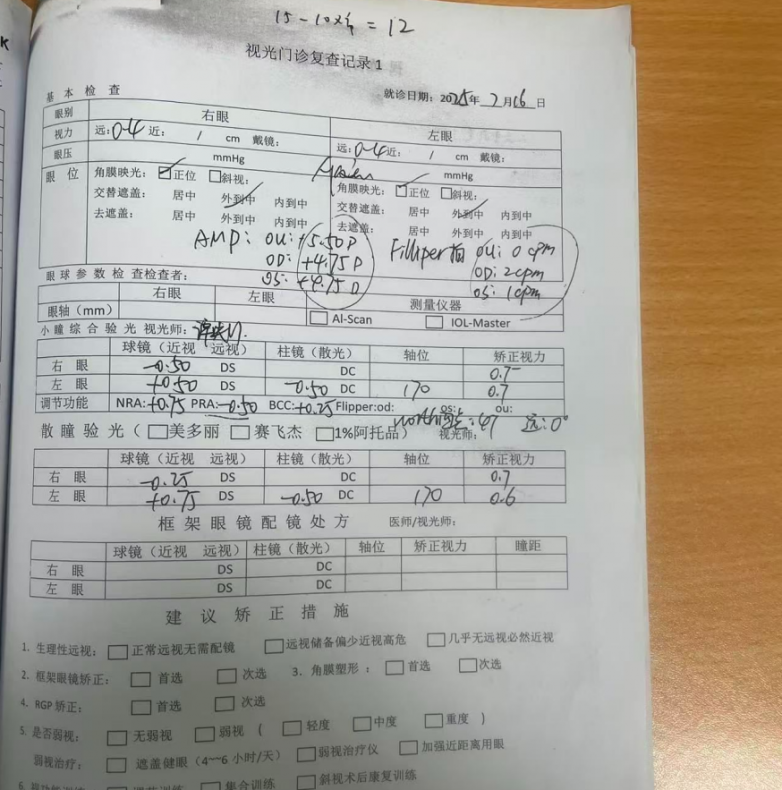 15-10×¼=12
视光门诊复查记录1
基本检查 就诊日期：2025年2月16日
眼别 右眼 左眼
视力 远：0.4 近： / cm 戴镜： 远：0.4 近： / cm 戴镜：
眼压 mmHg mmHg
眼位 角膜映光： ☑正位 □斜视： 角膜映光： ☑正位 □斜视：
交替遮盖： 居中 外到中 内到中 交替遮盖： 居中 外到中 内到中
去遮盖： 居中 外到中 内到中 去遮盖： 居中 外到中 内到中
AMP： OU：+5.50D Filliper OU：0cpm
OD：+4.75D OD：2cpm
OS：+4.75D OS：1cpm
眼球参数检查检查者：
右眼 左眼 测量仪器
眼轴（mm） □Al-Scan □IOL-Master
小瞳综合验光 视光师：
球镜（近视 远视） 柱镜（散光） 轴位 矫正视力
右眼 -0.50 DS DC 0.7-
左眼 +0.50 DS -0.50 DC 170 0.7
调节功能 NRA:+0.75 PRA:-0.50 BCC:+0.25 Flipper:od: os: ou:
worth 远：
散瞳验光（□美多丽 □赛飞杰 □1%阿托品） 视光师：
球镜（近视 远视） 柱镜（散光） 轴位 矫正视力
右眼 -0.25 DS DC 0.7
左眼 +0.75 DS -0.50 DC 170 0.6
框架眼镜配镜处方 医师/视光师：
球镜（近视 远视） 柱镜（散光） 轴位 矫正视力 瞳距
右眼 DS DC
左眼 DS DC
建议矫正措施
1. 生理性远视： □正常远视无需配镜 □远视储备偏少近视高危 □几乎无远视必然近视
2. 框架眼镜矫正： □首选 □次选 3. 角膜塑形： □首选 □次选
4. RGP矫正： □首选 □次选
5. 是否弱视： □无弱视 □弱视（ □轻度 □中度 □重度 ）
弱视治疗： □遮盖健眼（4~~6小时/天） □弱视治疗仪 □加强近距离用眼
□集合训练 □斜视术后康复训练